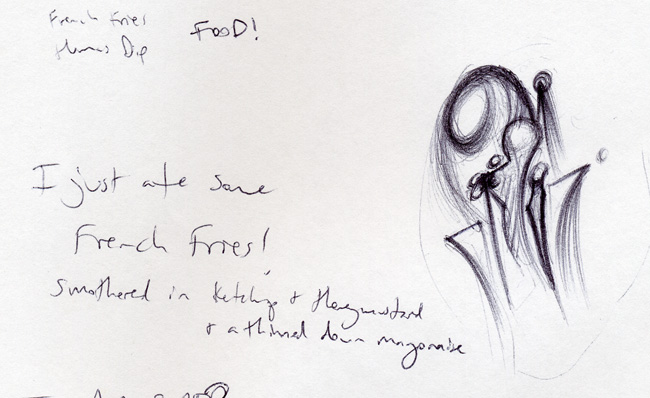 French Fries
FOOD!
Humus Dip
I just ate some
French Fries!
Smothered in Ketchup + Honeymustard
+ a thinned down mayonaise